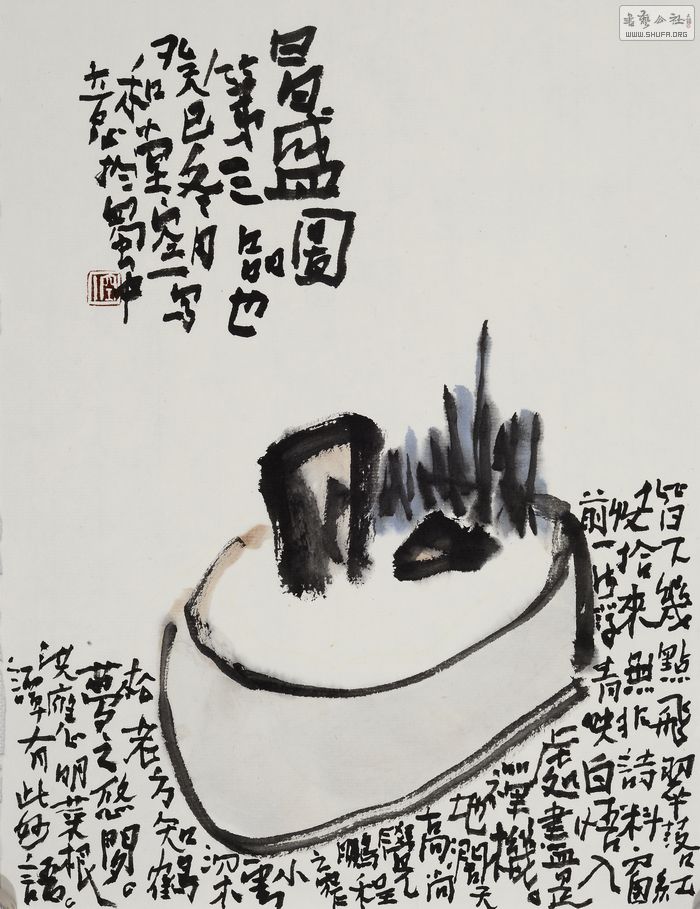 書藝公社
WWW.SHUFA.ORG
昌盛图
第三品也
癸巳冬月
和堂空一写
意於蜀中
階下幾點飛翠落红
收拾來無非詩料窗
前一片浮青映白悟入
處盡是
禪機。
地濶天
高尚
覺
鵬程
之窄
小
雲
深
松老方知鶴
夢之悠閒。
洪應明菜根
譚有此妙語。